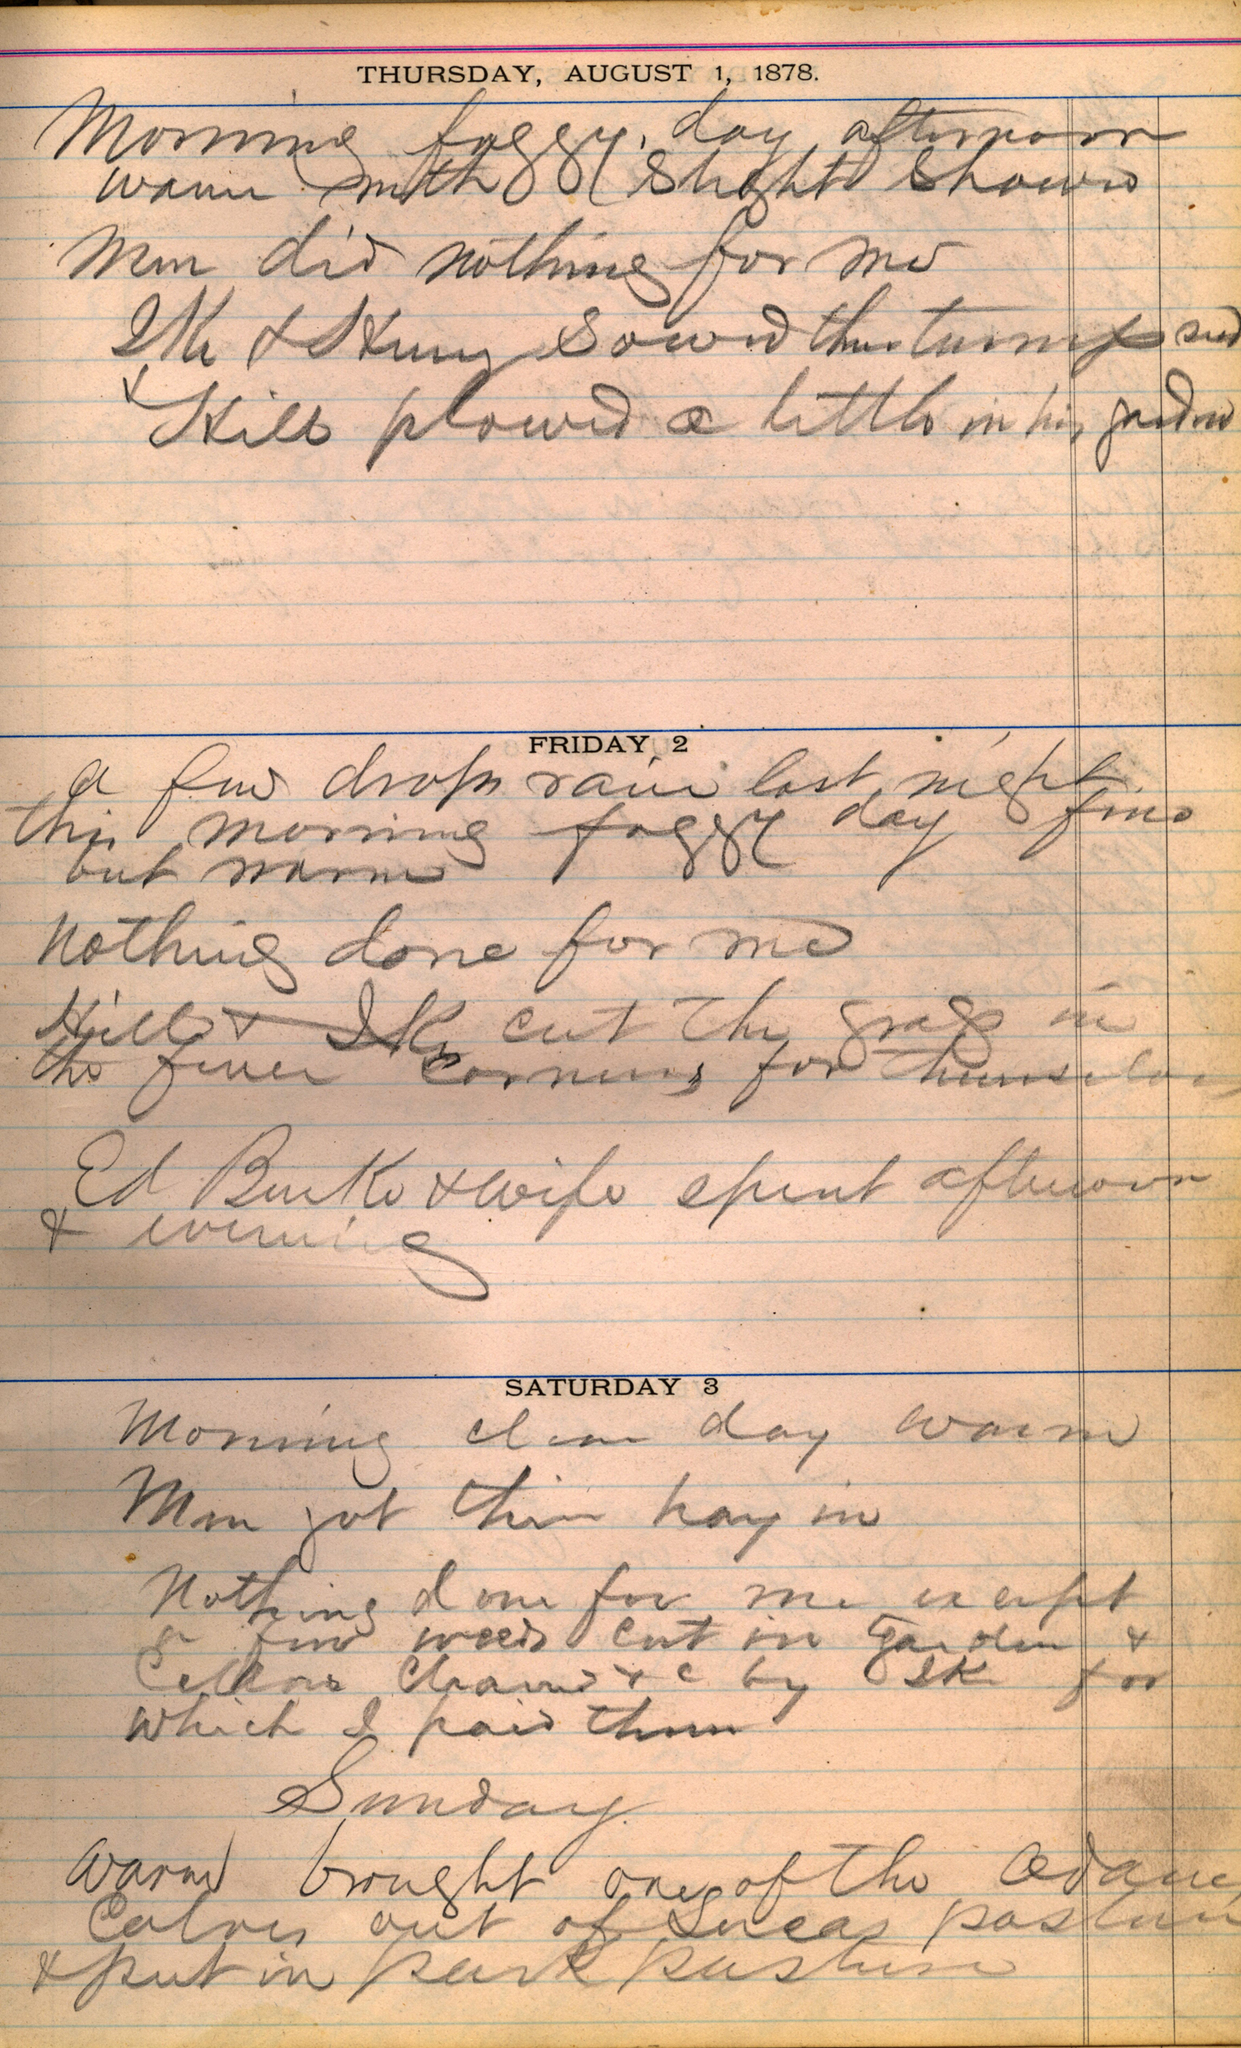 THURSDAY, AUGUST 1, 1878.
Morning foggy, day afternoon
warm with slight shower
Men did nothing for me
Ike & Henry sowed their turnip seed
& Hill plowed a little in his garden
FRIDAY 2
a few drops rain last night
this morning foggy day fine
but warm
Nothing done for me
Hill & Ike cut the grass in
the fence corners for themselves
Ed Burke & wife spent afternoon
& evening
SATURDAY 3
Morning clear day warm
Men got their hay in
Nothing done for me except
a few weeds cut in garden &
Cellar cleaned &c by Ike for
which I paid them
Sunday
Warm brought one of the Adams
Calves out of Lucas pasture
& put in park pasture